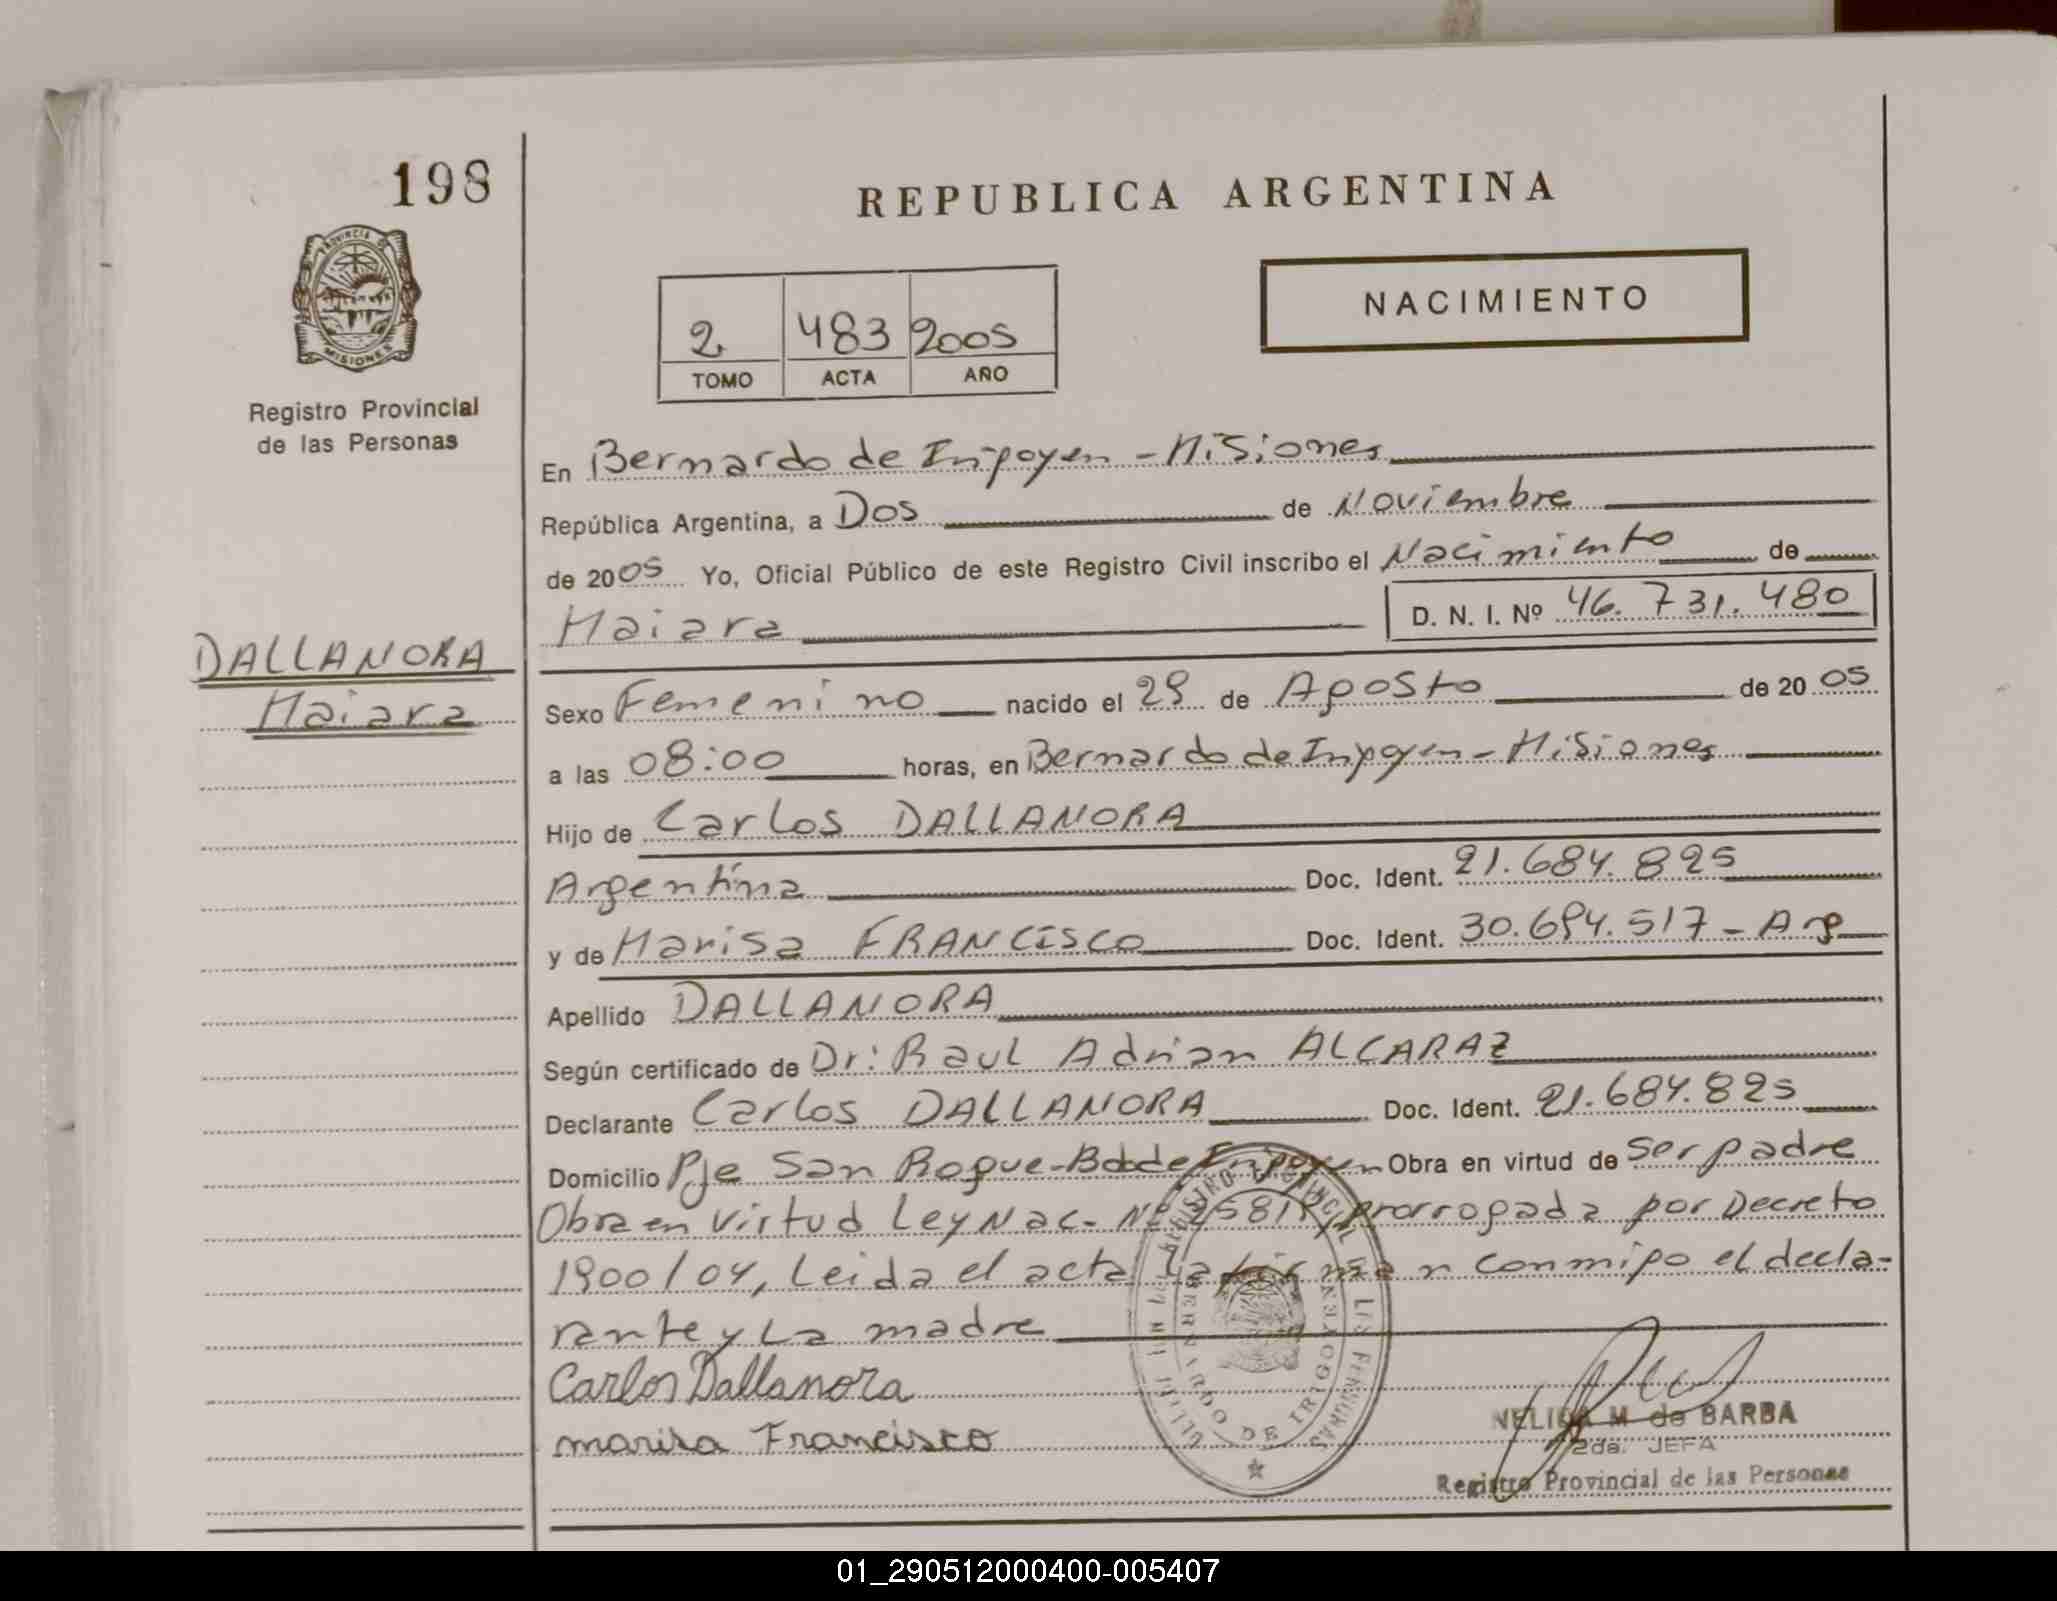 198
PROVINCIA DE
MISIONES
Registro Provincial
de las Personas
DALLANORA
Maiara
REPUBLICA ARGENTINA
NACIMIENTO
2 483 2005
TOMO ACTA AÑO
En Bernardo de Irigoyen - Misiones
República Argentina, a Dos de Noviembre
de 2005 Yo, Oficial Público de este Registro Civil inscribo el Nacimiento de
Maiara D. N. I. Nº 46.731.480
Sexo Femenino nacido el 29 de Agosto de 2005
a las 08:00 horas, en Bernardo de Irigoyen - Misiones
Hijo de Carlos DALLANORA
Argentina Doc. Ident. 21.684.825
y de Marisa FRANCISCO Doc. Ident. 30.694.517 - Arg
Apellido DALLANORA
Según certificado de Dr: Raul Adrian ALCARAZ
Declarante Carlos DALLANORA Doc. Ident. 21.684.825
Domicilio Pje San Roque - Bdo de Irigoyen Obra en virtud de ser padre
Obra en virtud Ley Nac. Nº 25819, prorrogada por Decreto
1900/04, Leida el acta La firman conmigo el decla-
rante y La madre
Carlos Dallanora
marisa Francisco
BERNARDO DE IRIGOYEN
NELIDA M. de BARBA
2da. JEFA
Registro Provincial de las Personas
01_290512000400-005407